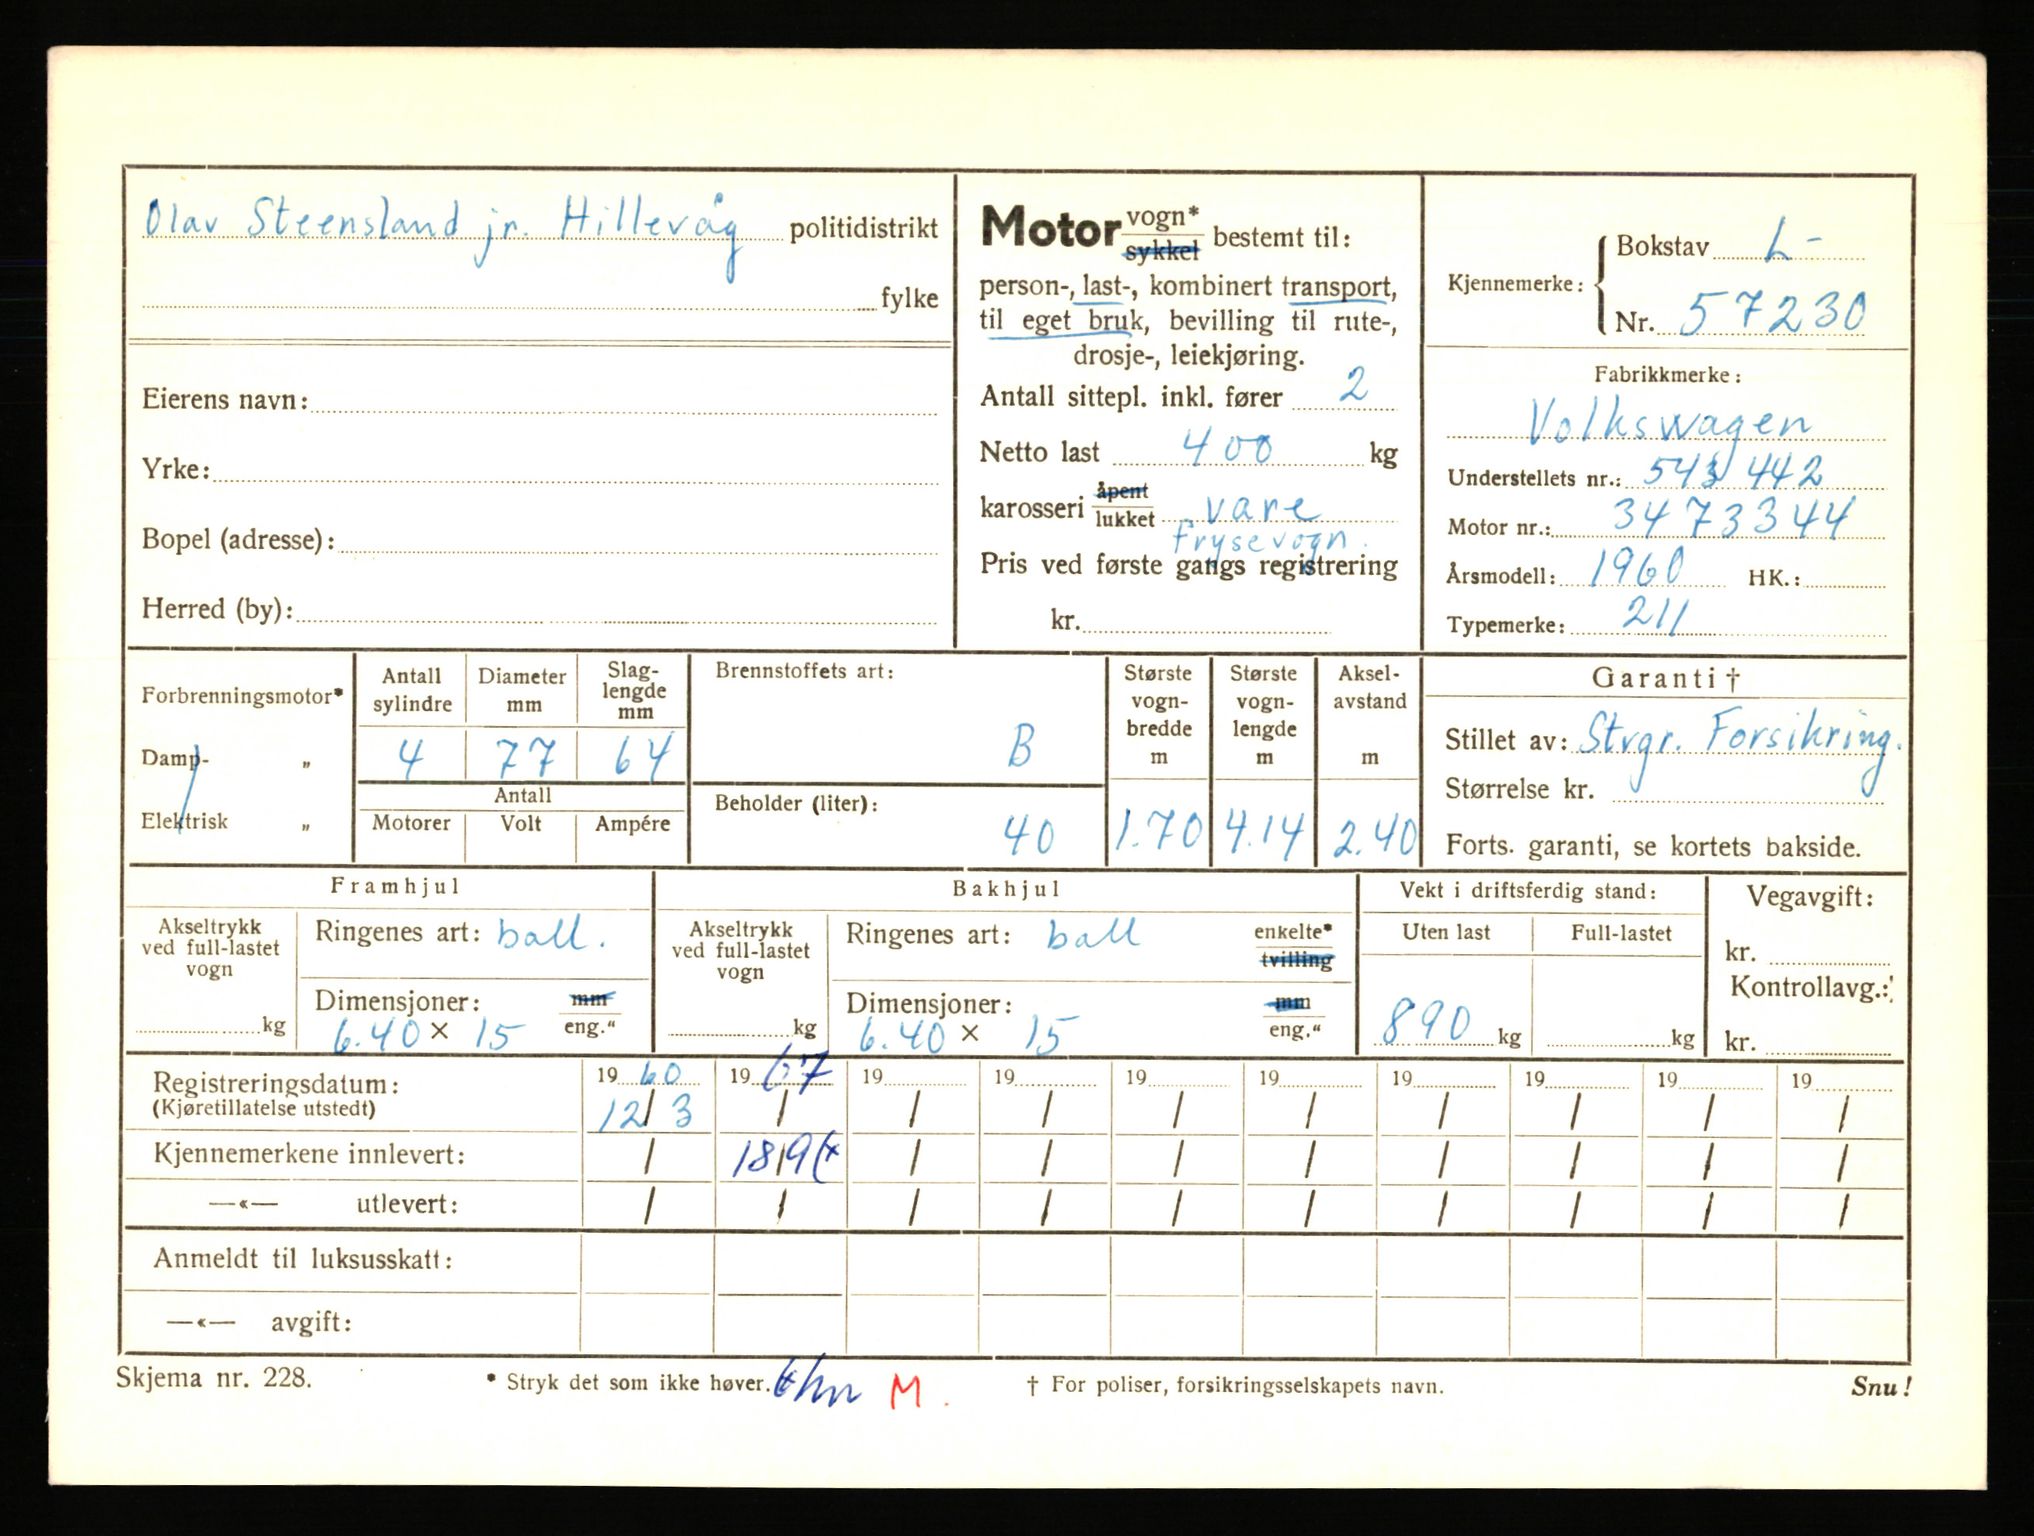 Olav Steensland jr. Hillevåg politidistrikt
fylke
Eierens navn:
Yrke:
Bopel (adresse):
Herred (by):
Motor vogn* sykkel bestemt til:
person-, last-, kombinert transport,
til eget bruk, bevilling til rute-,
drosje-, leiekjøring.
Antall sittepl. inkl. fører 2
Netto last 400 kg
karosseri åpent lukket vare
frysevogn.
Pris ved første gangs registrering
kr.
Kjennemerke: Bokstav L-
Nr. 57230
Fabrikkmerke:
Volkswagen
Understellets nr.: 543 442
Motor nr.: 3473344
Årsmodell: 1960 HK.:
Typemerke: 211
Forbrenningsmotor*
Damp- „
Elektrisk „
Antall sylindre
4
Diameter mm
77
Slag-lengde mm
64
Antall
Motorer Volt Ampére
Brennstoffets art:
B
Beholder (liter):
40
Største vogn-bredde m
1.70
Største vogn-lengde m
4.14
Aksel-avstand m
2.40
Garanti †
Stillet av: Stvgr. Forsikring.
Størrelse kr.
Forts. garanti, se kortets bakside.
Framhjul
Akseltrykk
ved full-lastet
vogn
kg
Ringenes art: ball.
Dimensjoner: mm
6.40 × 15 eng.“
Bakhjul
Akseltrykk
ved full-lastet
vogn
kg
Ringenes art: ball enkelte*
tvilling
Dimensjoner: mm
6.40 × 15 eng.“
Vekt i driftsferdig stand:
Uten last Full-lastet
890 kg kg
Vegavgift:
kr.
Kontrollavg.:
kr.
Registreringsdatum: 19 60 19 67 19 19 19 19 19 19 19 19
(Kjøretillatelse utstedt) 12/3 / / / / / / / / /
Kjennemerkene innlevert: / 18/9 / / / / / / / /
—«— utlevert: / / / / / / / / / /
Anmeldt til luksusskatt:
—«— avgift:
Skjema nr. 228. * Stryk det som ikke høver. M. † For poliser, forsikringsselskapets navn. Snu!